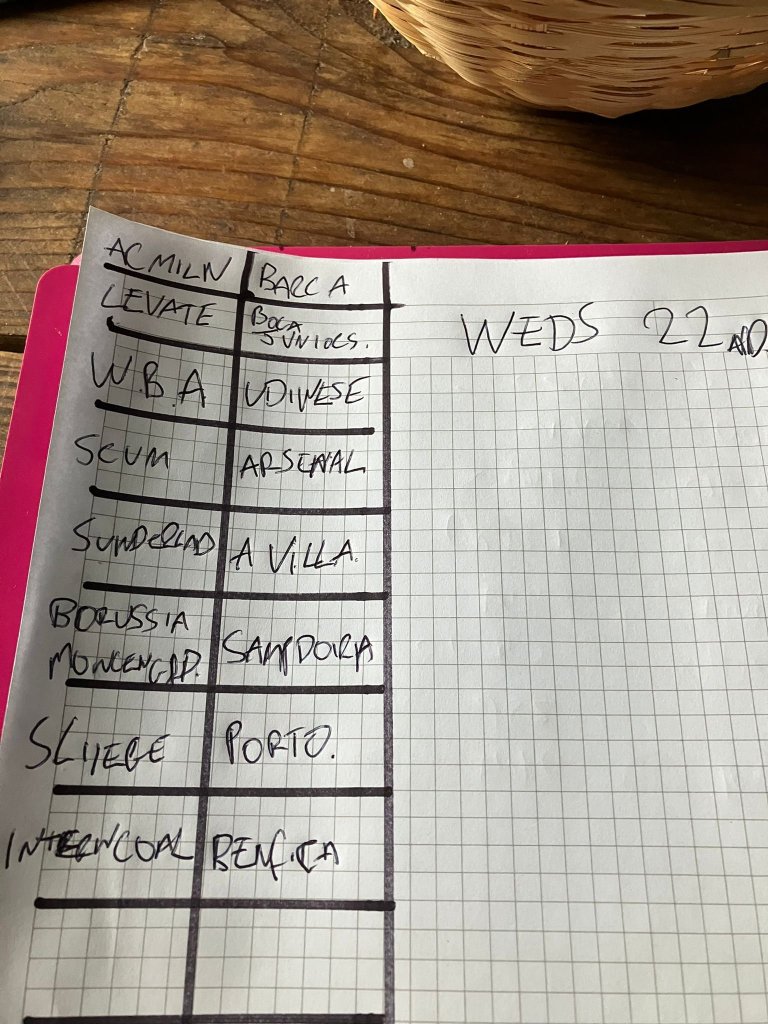 ACMILN BARCA
LEVATE BOCA JUNIOCS.
WEDS 22ND.
W.B.A UDINESE
SCUM ARSENAL
SUNDERLAD A VILLA.
BORUSSIA
MONCENGAD. SAMPDORIA
SLIEGE PORTO.
INTERNCOAL BENFICA